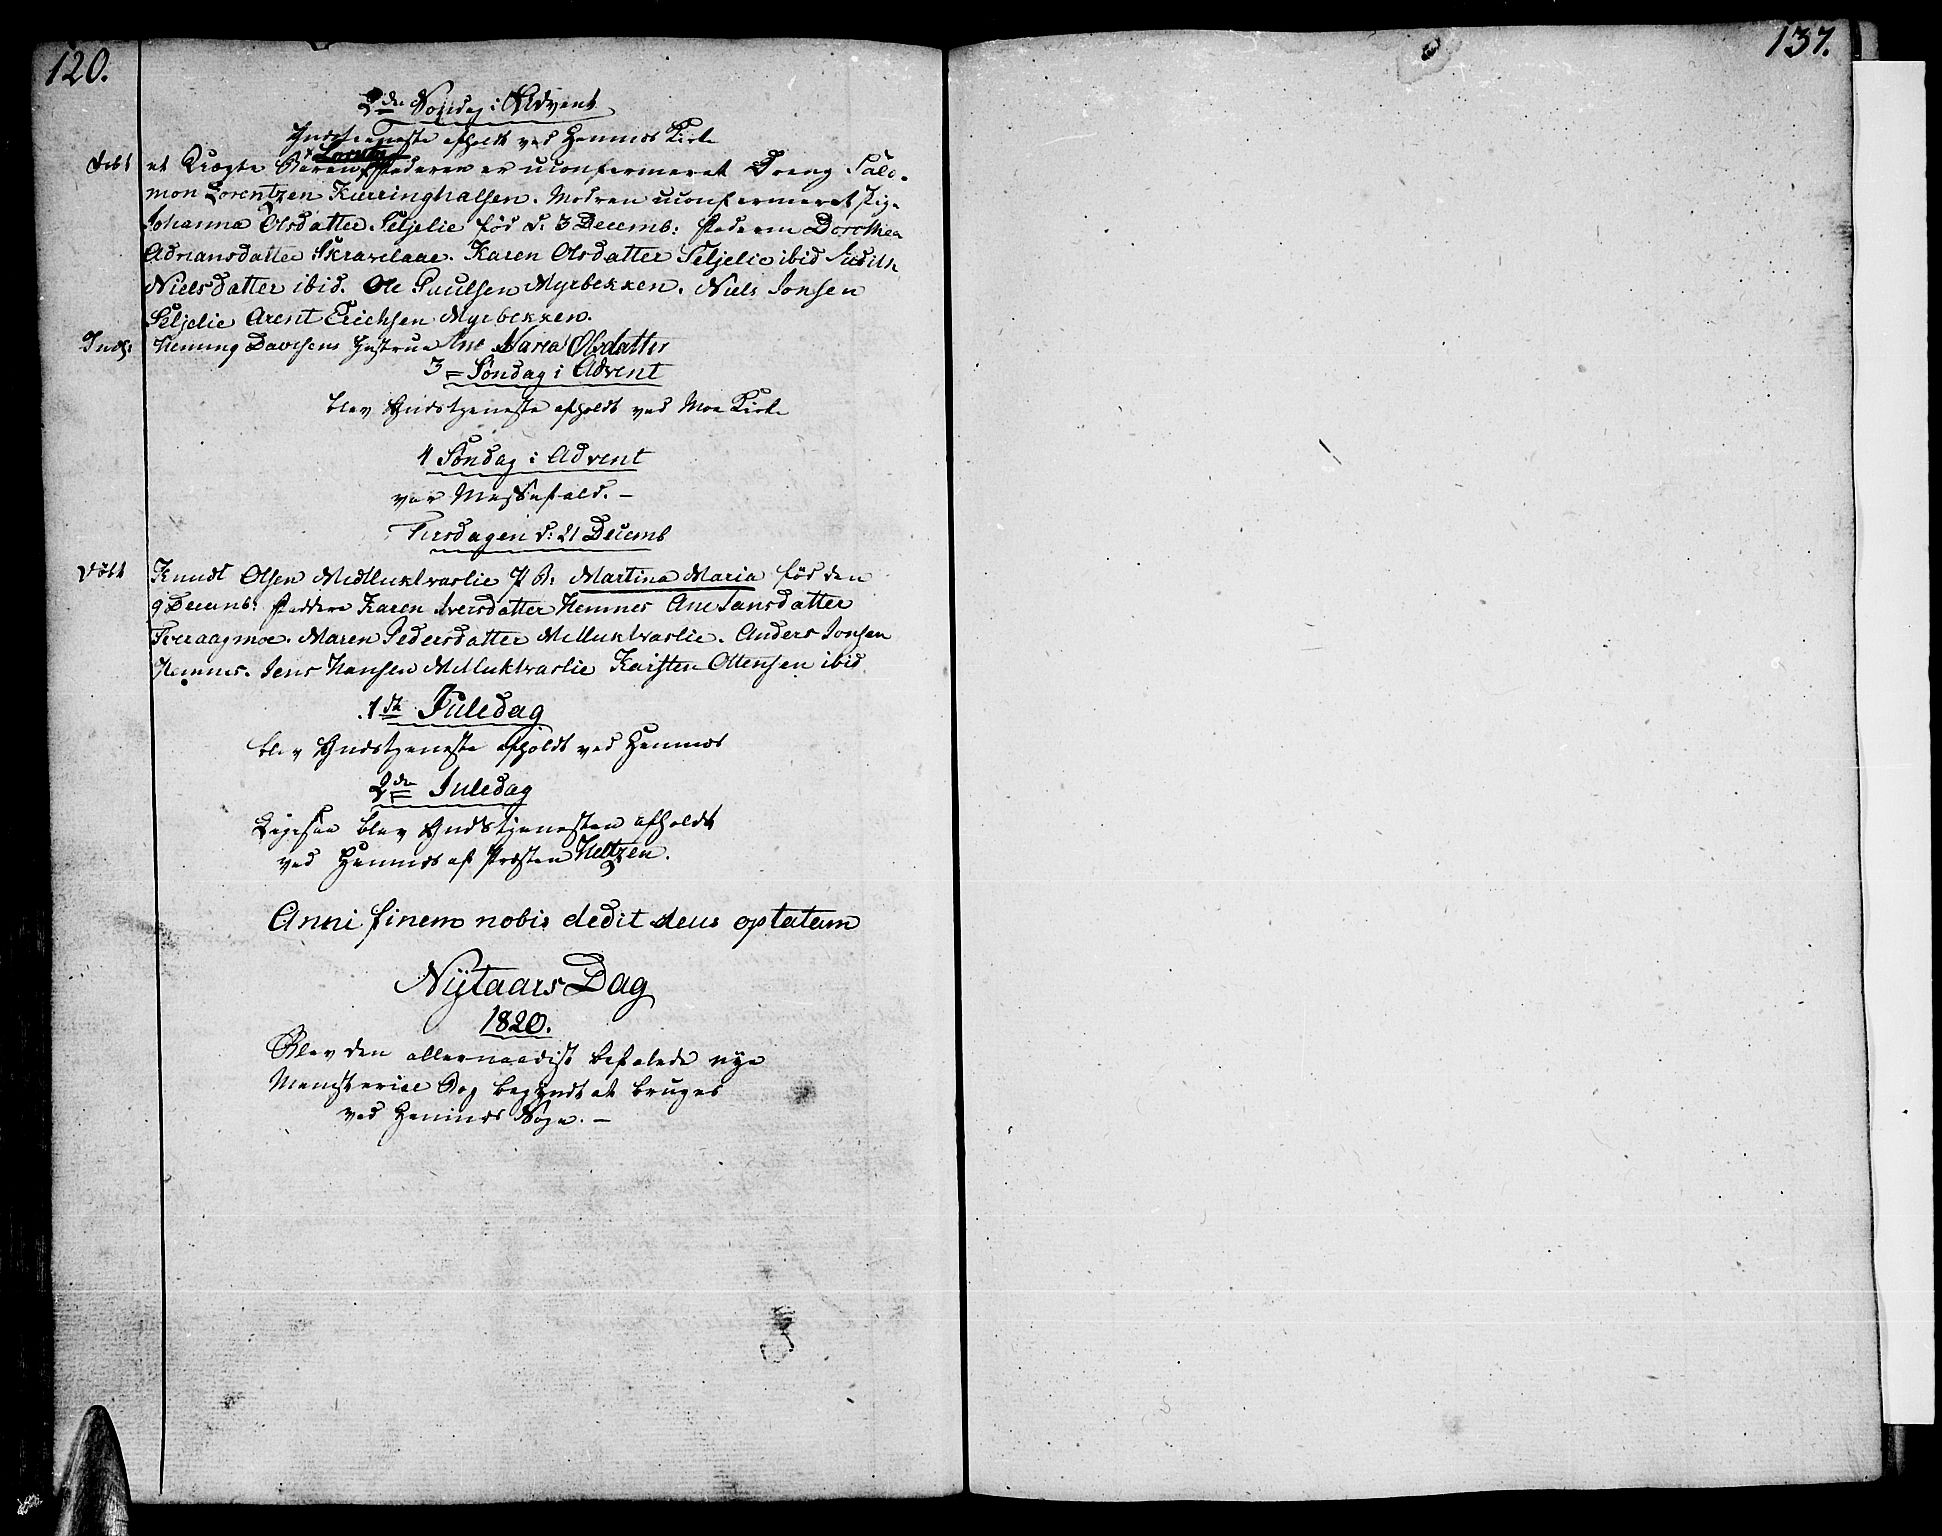 120.
137.
2den Søndag i Advent
Gudstieneste afholdt ved Hemnes Kirke
Døbt et Uægte Barn Lorentz Faderen er uconfermeret Dreng Salo-
mon Lorentzen Kierringhalsen. Modren uconfermeret Pig.
Johanna Olsdatter Seljelie fød d. 3 Decemb: Faderne Dorothea
Adriansdatter Skravelaae. Karen Olsdatter Seljelie ibid Judith
Nielsdatter ibid. Ole Paulsen Myrbekken. Niels Jonsen
Seljelie Arent Erichsen Myrbekken.
Inds: Heming Davidsens Hustrue Ane Maria Olsdatter
3 Søndag i Advent
blev Gudstjeneste afholdt ved Moe Kirke
4 Søndag i Advent
var Messefald. –
Tirsdagen d: 21 Decemb
Døbt Knudt Olsen Midluktvaslie P B: Martina Maria fød den
9 Decemb: Faddere Karen Iversdatter Hemnes Ane Jansdatter
Tveraagmoe. Maren Pedersdatter Melluktvaslie. Anders Jonsen
Hemnes. Jens Hansen Melluktvaslie Karsten Ottensen ibid
1ste Juledag
blev Gudstjeneste afholdt ved Hemnes
2den Juledag
Ligesaa blev Gudstjenesten afholdt
ved Hemnes af Præsten Heltzen.
Anni finem nobis dedit deus optatum
Nytaars Dag
1820.
Blev den allernaadist befalede nye
Menisterial Bog begyndt at bruges
ved Hemnes Sogn. –